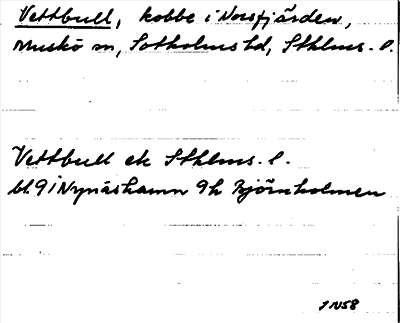 Vettbull, kobbe i Norsfjärden,
Muskö sn, Sotholms hd, Sthlms. l.
Vettbull ek Sthlms. l.
bl. 9 i Nynäshamn 9h Björnholmen
1 N58